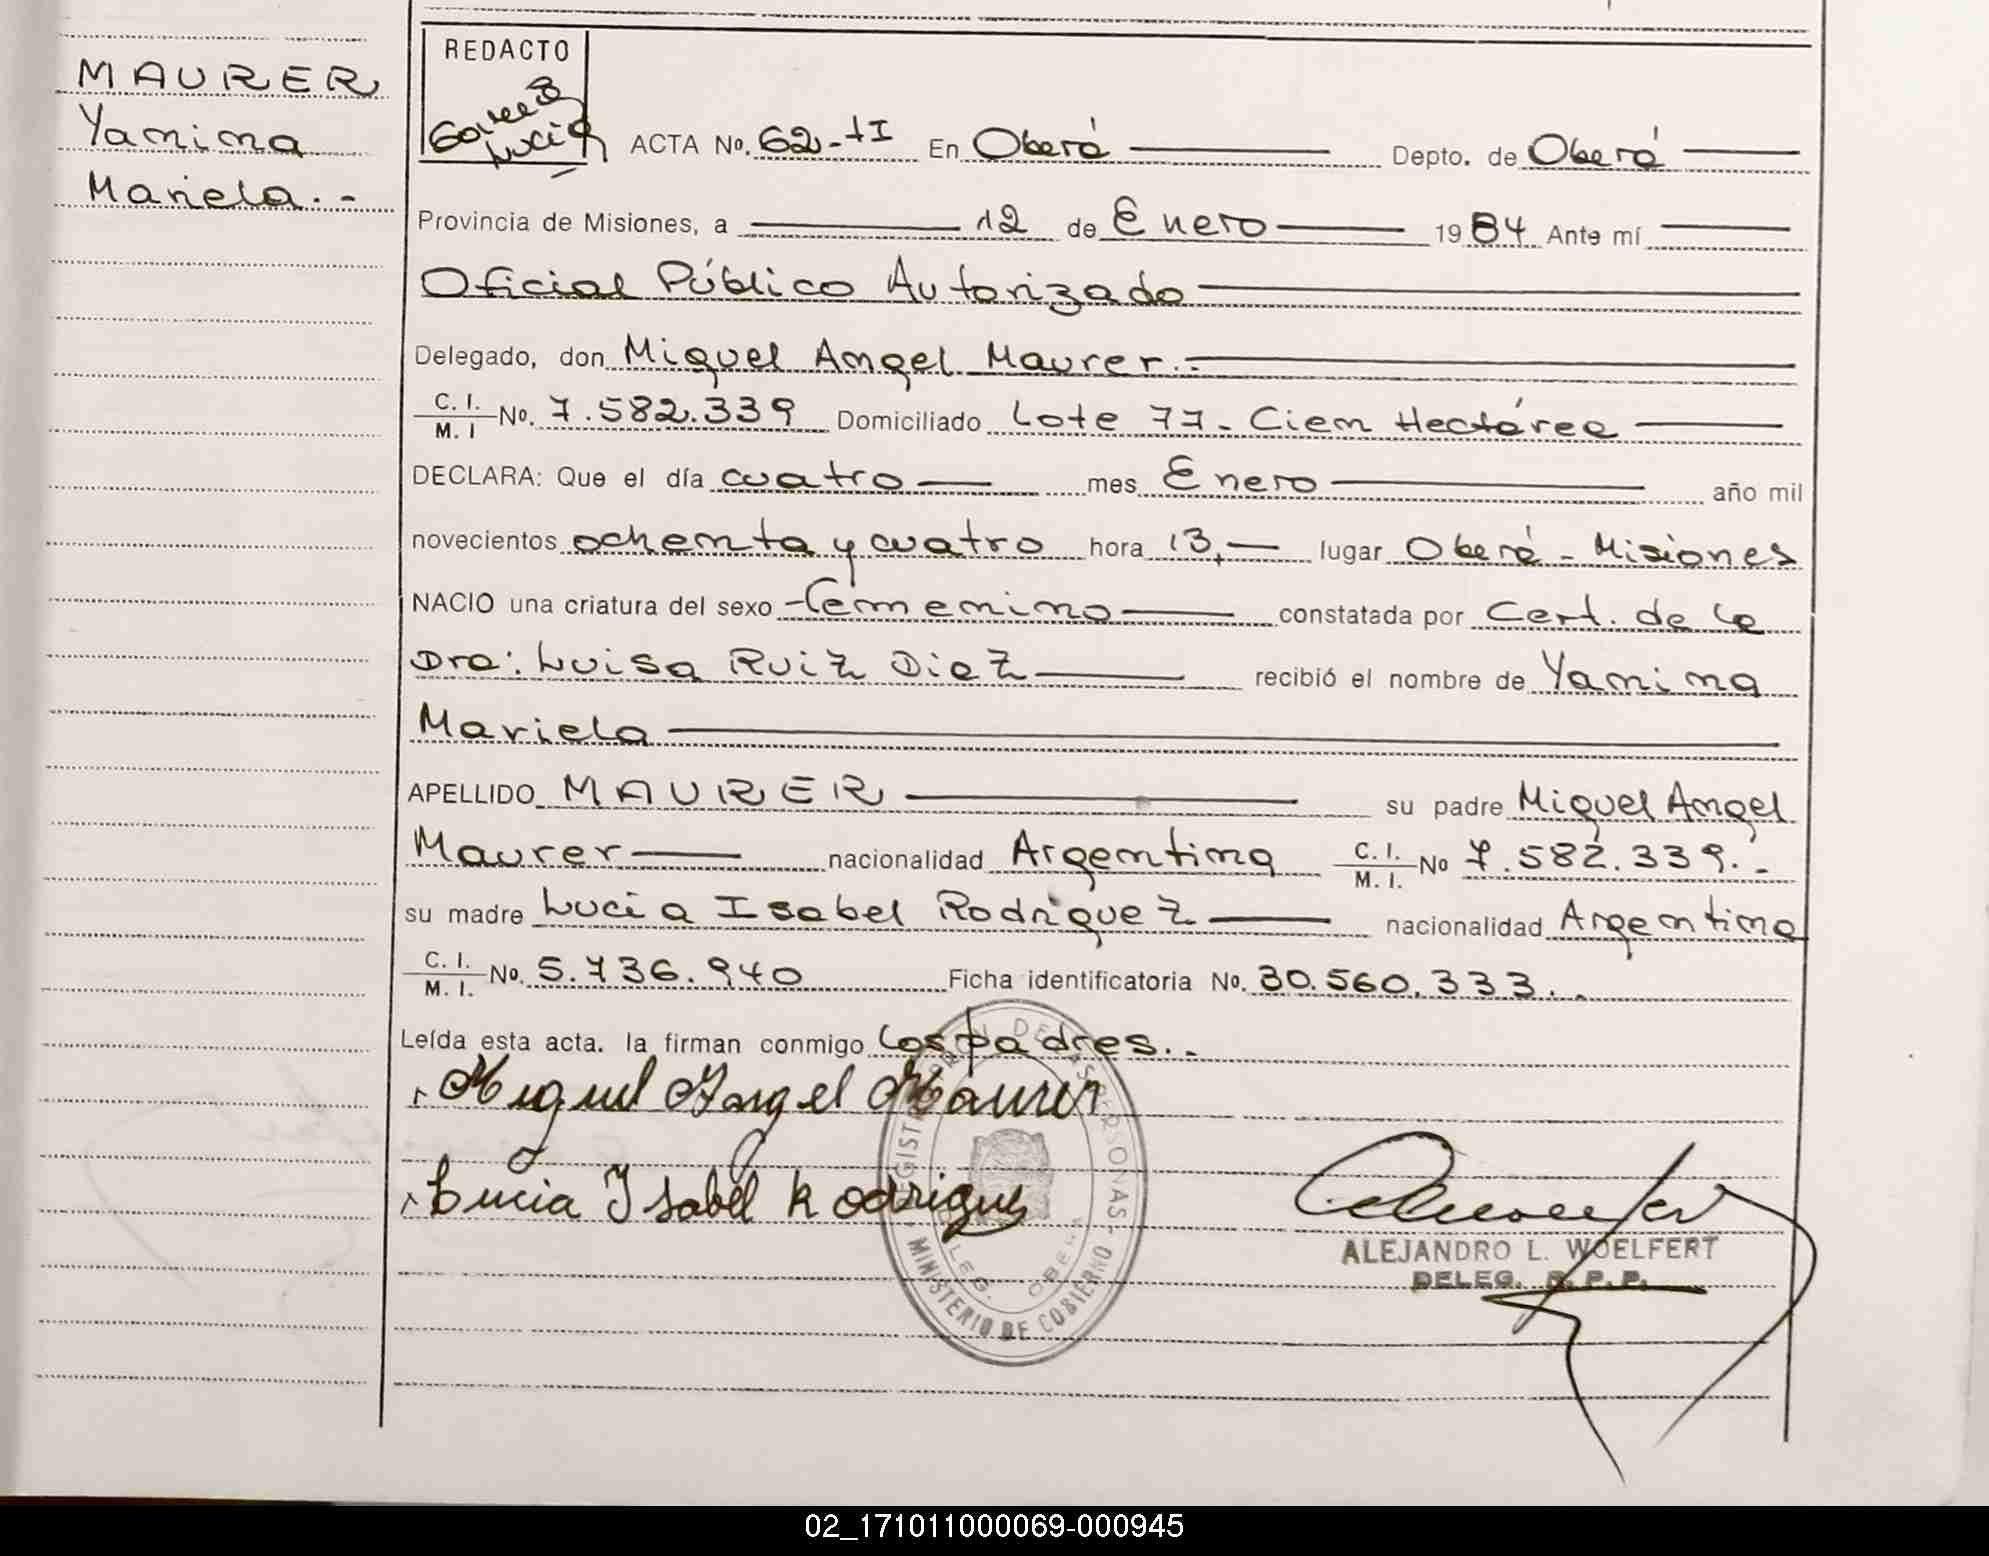 MAURER
Yanina
Mariela.-
REDACTO
Lucia
ACTA No. 62-tI En Oberá Depto. de Oberá
Provincia de Misiones, a 12 de Enero 1984 Ante mí
Oficial Público Autorizado
Delegado, don Miguel Angel Maurer.-
C. I. / M. I No. 7.582.339 Domiciliado Lote 77- Cien Hectárea
DECLARA: Que el día cuatro mes Enero año mil
novecientos ochenta y cuatro hora 13,- lugar Oberá - Misiones
NACIO una criatura del sexo femenino constatada por Cert. de la
Dra: Luisa Ruiz Diaz recibió el nombre de Yanina
Mariela
APELLIDO MAURER su padre Miguel Angel
Maurer nacionalidad Argentina C. I. / M. I. No 7.582.339.-
su madre Lucia Isabel Rodriguez nacionalidad Argentina
C. I. / M. I. No. 5.736.940 Ficha identificatoria No. 30.560.333.-
Leída esta acta. la firman conmigo los padres.-
Miguel Angel Maurer
Lucia Isabel Rodriguez
REGISTRO PROV. DE LAS PERSONAS
MINISTERIO DE GOBIERNO
DELEG. OBERA
ALEJANDRO L. WOELFERT
DELEG. R. P. P.
02_171011000069-000945